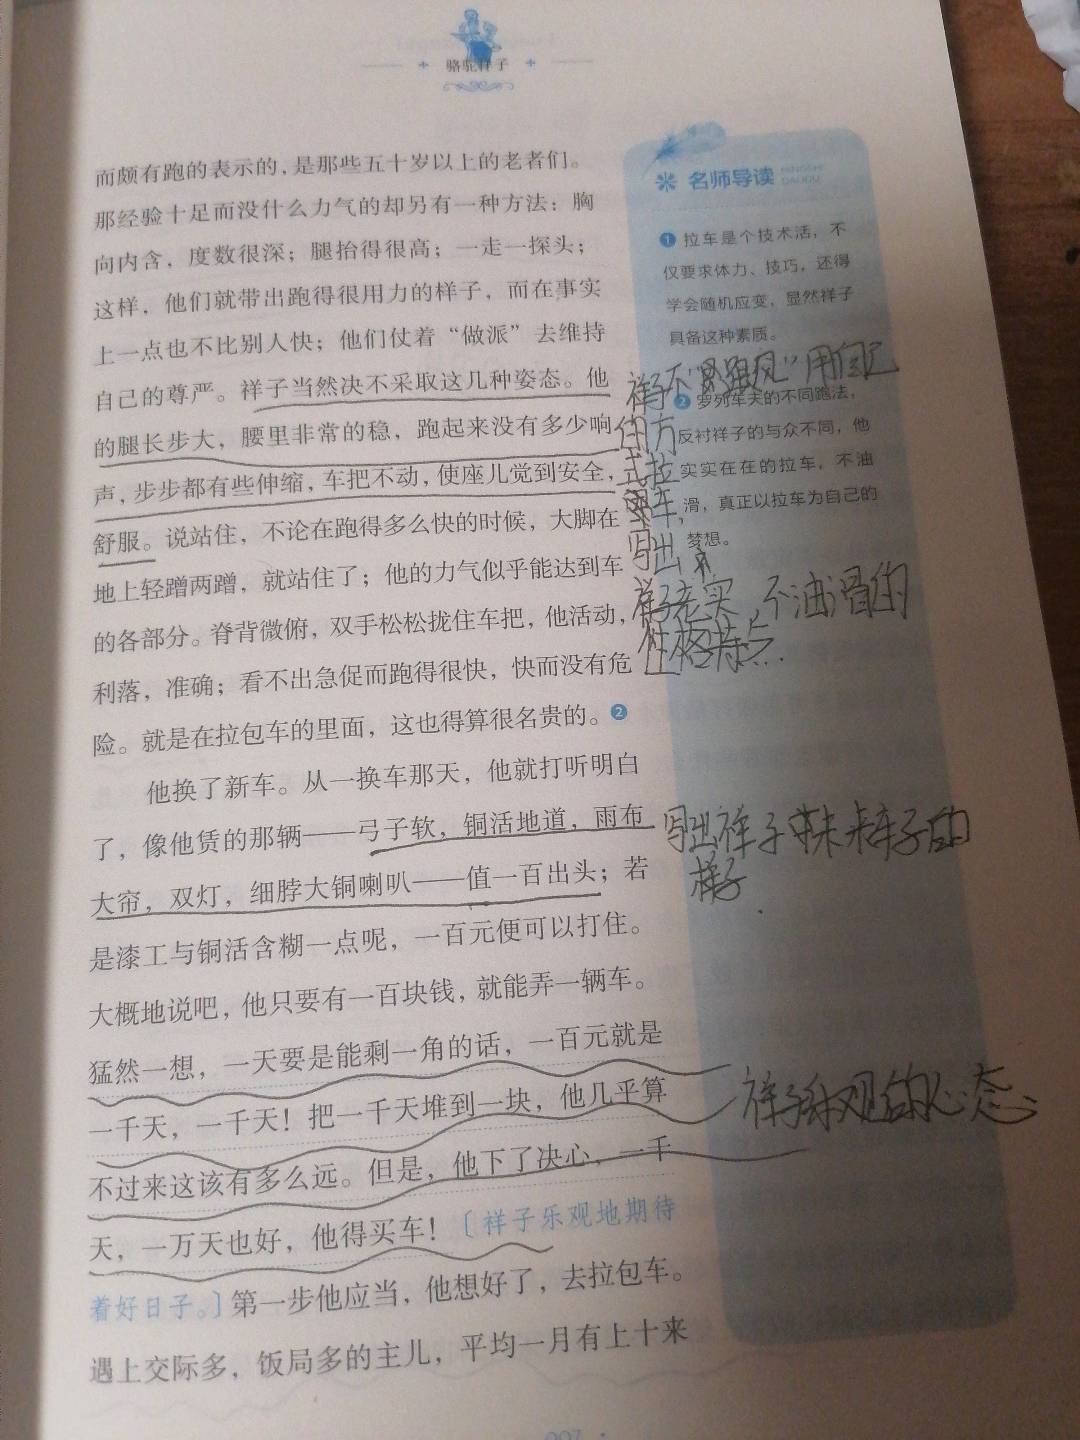 骆驼祥子
而颇有跑的表示的，是那些五十岁以上的老者们。
那经验十足而没什么力气的却另有一种方法：胸
向内含，度数很深；腿抬得很高；一走一探头；
这样，他们就带出跑得很用力的样子，而在事实
上一点也不比别人快；他们仗着“做派”去维持
自己的尊严。祥子当然决不采取这几种姿态。他
的腿长步大，腰里非常的稳，跑起来没有多少响
声，步步都有些伸缩，车把不动，使座儿觉到安全，
舒服。说站住，不论在跑得多么快的时候，大脚在
地上轻蹭两蹭，就站住了；他的力气似乎能达到车
的各部分。脊背微俯，双手松松拢住车把，他活动，
利落，准确；看不出急促而跑得很快，快而没有危
险。就是在拉包车的里面，这也得算很名贵的。❷
他换了新车。从一换车那天，他就打听明白
了，像他赁的那辆——弓子软，铜活地道，雨布
大帘，双灯，细脖大铜喇叭——值一百出头；若
是漆工与铜活含糊一点呢，一百元便可以打住。
大概地说吧，他只要有一百块钱，就能弄一辆车。
猛然一想，一天要是能剩一角的话，一百元就是
一千天，一千天！把一千天堆到一块，他几乎算
不过来这该有多么远。但是，他下了决心，一千
天，一万天也好，他得买车！〔祥子乐观地期待
着好日子。〕第一步他应当，他想好了，去拉包车。
遇上交际多，饭局多的主儿，平均一月有上十来
007
名师导读
MINGSHI
DAODU
❶ 拉车是个技术活，不
仅要求体力、技巧，还得
学会随机应变，显然祥子
具备这种素质。
❷ 罗列车夫的不同跑法，
反衬祥子的与众不同，他
实实在在的拉车，不油
滑，真正以拉车为自己的
梦想。
祥子不“跟风”用自己
的方
式拉
车，
写出
祥子老实，不油滑的
性格特点.
写出祥子未来车子的
样子
祥子乐观的心态